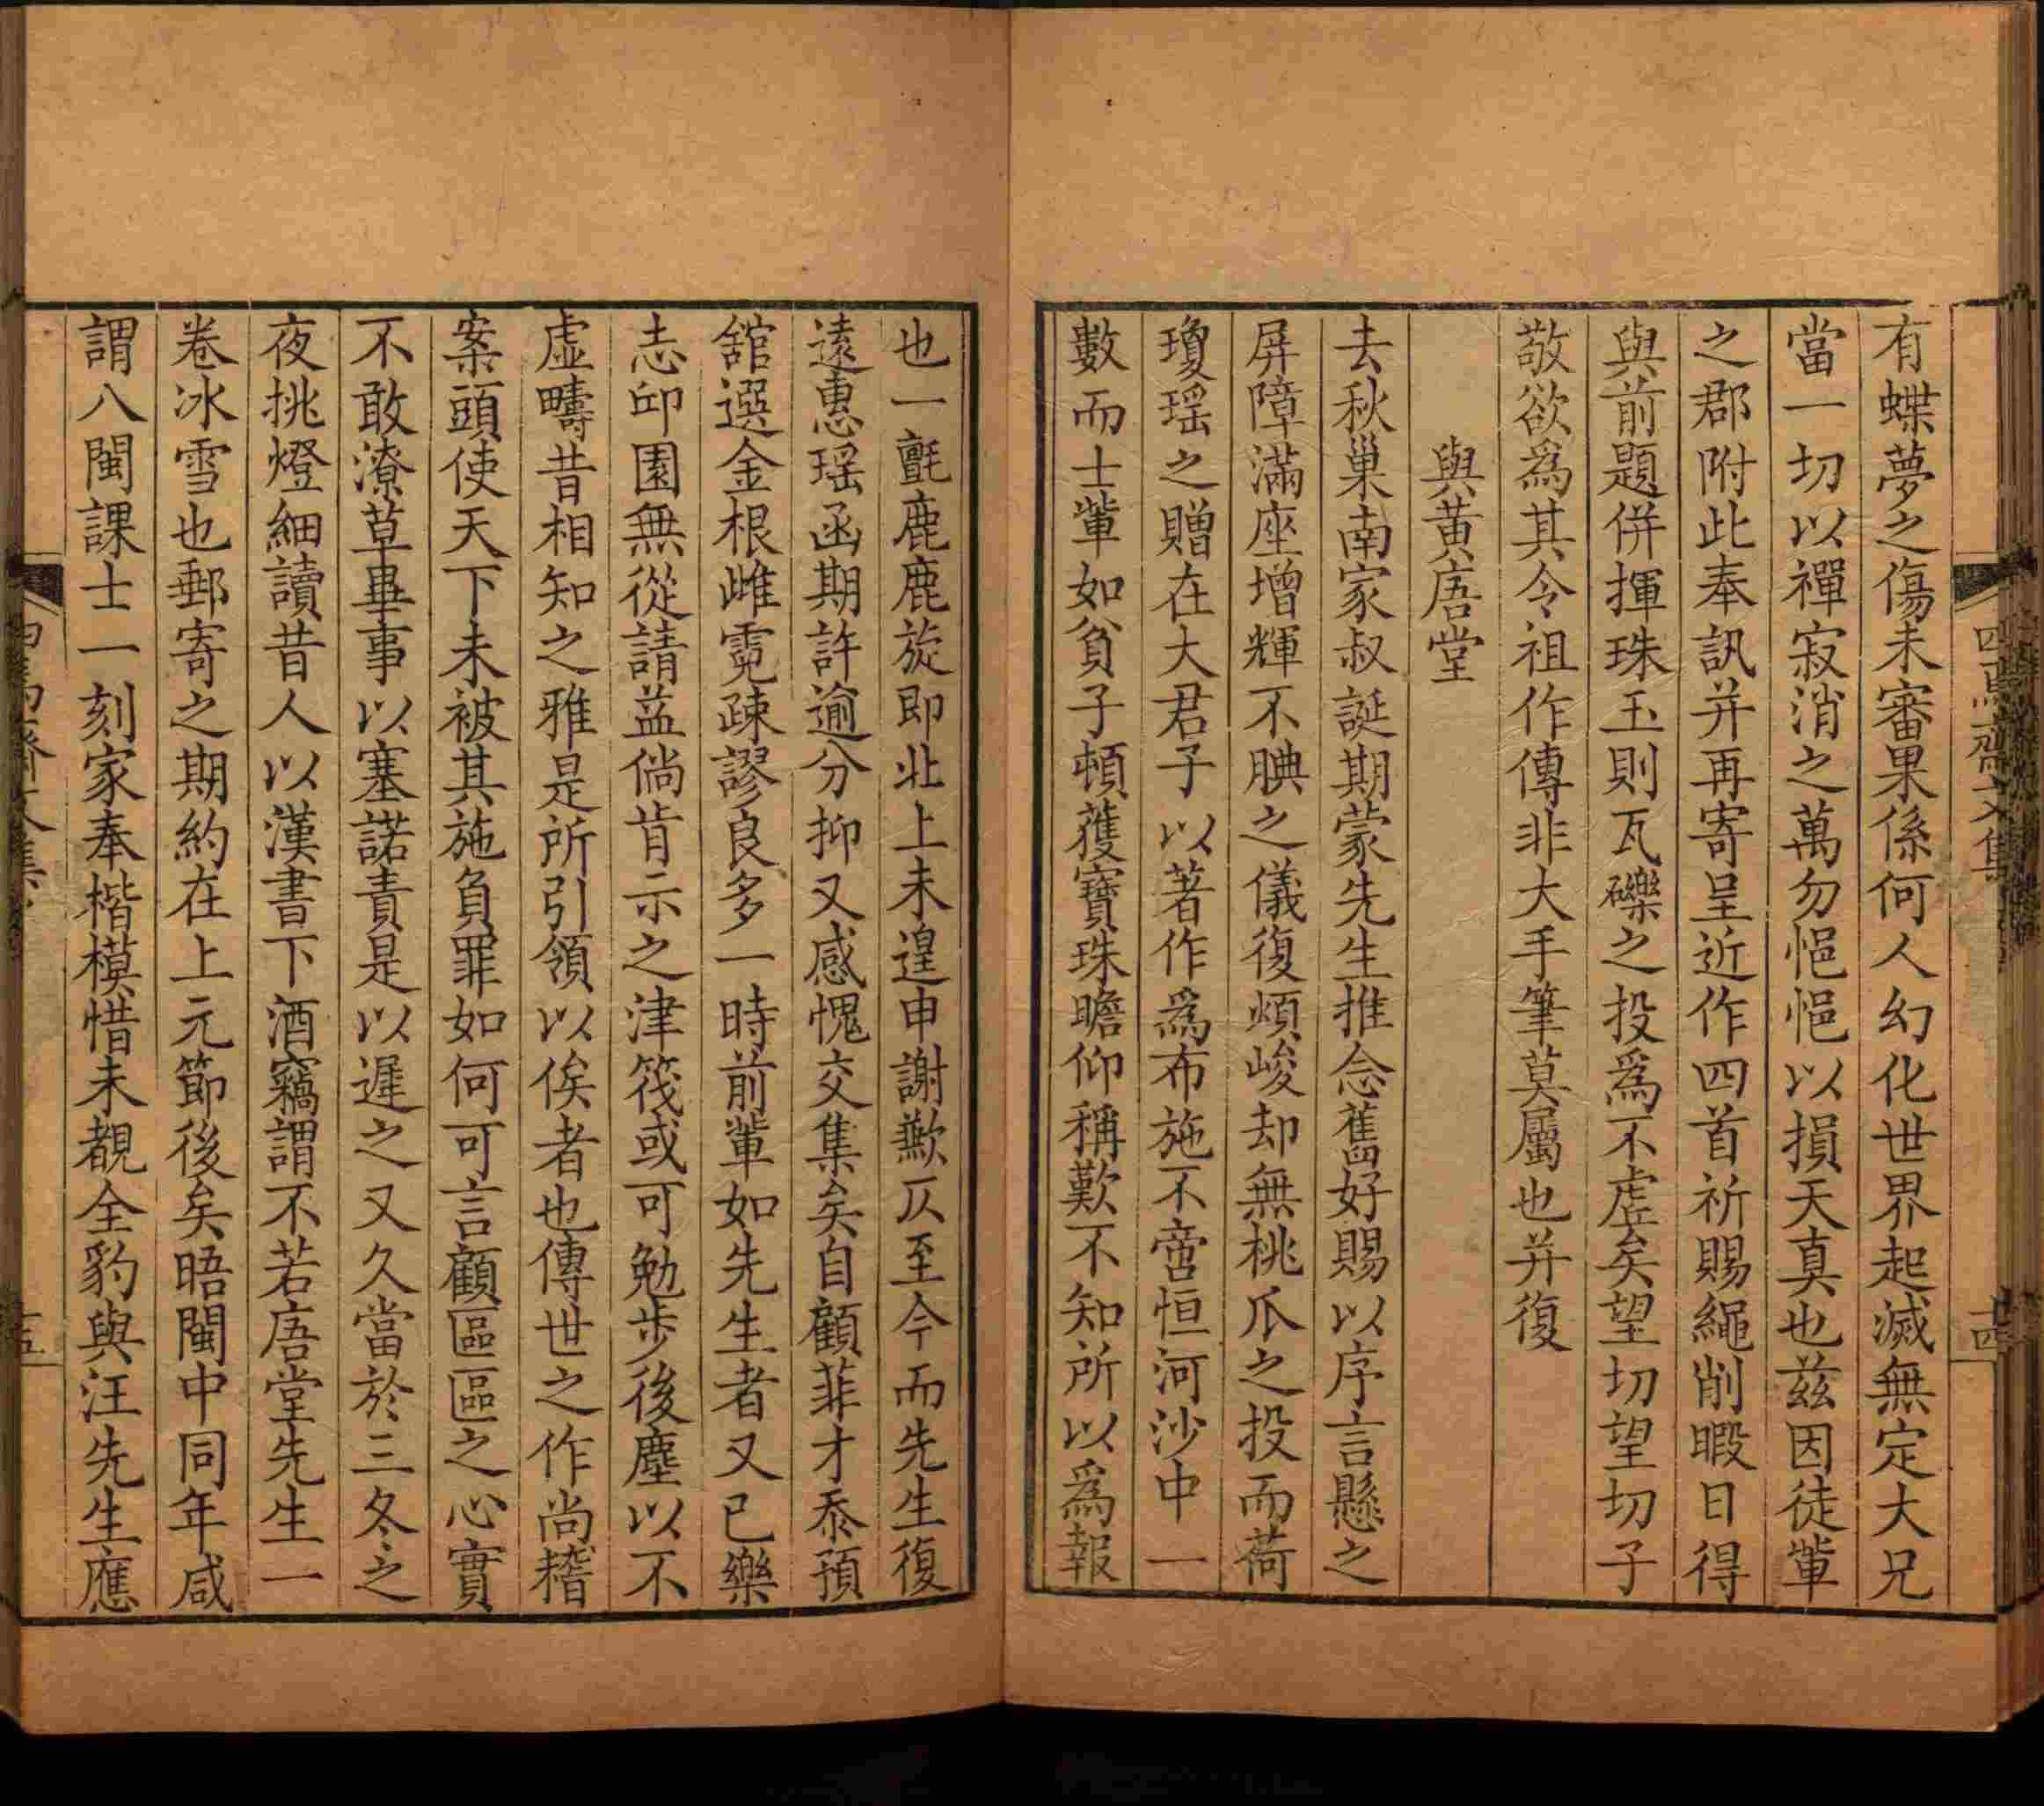 有蝶夢之傷未審果係何人幻化世界起滅無定大兄
當一切以禪寂消之萬勿悒悒以損天真也茲因徒輩
之郡附此奉訊并再寄呈近作四首祈賜繩削暇日得
與前題併揮珠玉則瓦礫之投爲不虛矣望切望切子
敬欲爲其令祖作傳非大手筆莫屬也并復
與黄唐堂
去秋巢南家叔誕期蒙先生推念舊好賜以序言懸之
屏障滿座增輝不腆之儀復煩峻却無桃瓜之投而荷
瓊瑶之贈在大君子以著作爲布施不啻恒河沙中一
數而士輩如貧子頓獲寶珠瞻仰稱歎不知所以爲報
也一氈鹿鹿旋即北上未遑申謝歉仄至今而先生復
遠惠瑶函期許逾分抑又感愧交集矣自顧菲才忝預
舘選金根雌霓疎謬良多一時前輩如先生者又已樂
志邱園無從請益倘肯示之津筏或可勉步後塵以不
虛疇昔相知之雅是所引領以俟者也傳世之作尚稽
案頭使天下未被其施負罪如何可言顧區區之心實
不敢潦草畢事以塞諾責是以遲之又久當於三冬之
夜挑燈細讀昔人以漢書下酒竊謂不若唐堂先生一
卷冰雪也郵寄之期約在上元節後矣晤閩中同年咸
謂八閩課士一刻家奉楷模惜未覩全豹與汪先生應
四焉齋文集
十四
十五